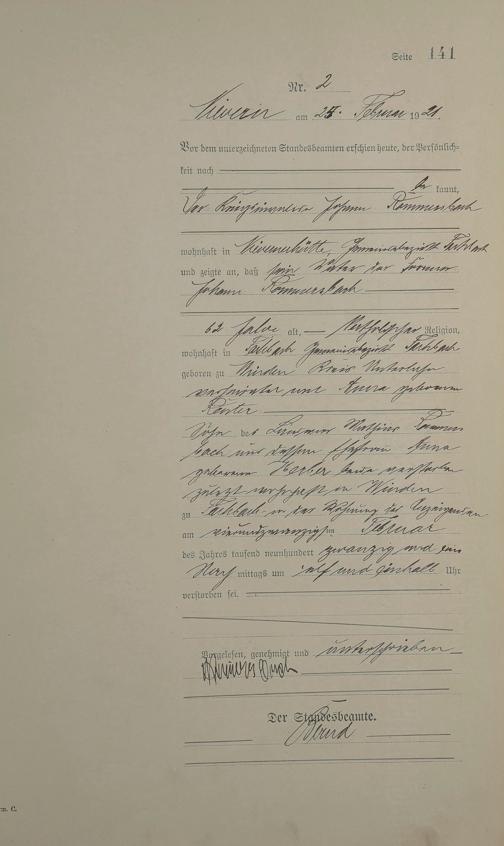 Seite 141
Nr. 2
Nievern am 25. Februar 1921.
Vor dem unterzeichneten Standesbeamten erschien heute, der Persönlich-
keit nach
be kannt,
Der Johann Rommersbach
wohnhaft in Nievernerhütte, Gemeindebezirk Fachbach
und zeigte an, daß sein Vater der Former
Johann Rommersbach
62 Jahre alt, Katholischer Religion,
wohnhaft in Fachbach Gemeindebezirk Fachbach
geboren zu Winden Kreis Unterlahn
verheiratet mit Anna geborenen
Sohn des Mathias Rommers
bach und dessen Ehefrau Anna
geborenen beide verstorben
zuletzt wohnhaft in Winden
zu Fachbach in der Wohnung des Anzeigenden
am vierundzwanzigsten Februar
des Jahres tausend neunhundert zwanzig und ein
Nach mittags um elf und einhalb Uhr
verstorben sei.
Vorgelesen, genehmigt und unterschrieben
Der Standesbeamte.
m. C.